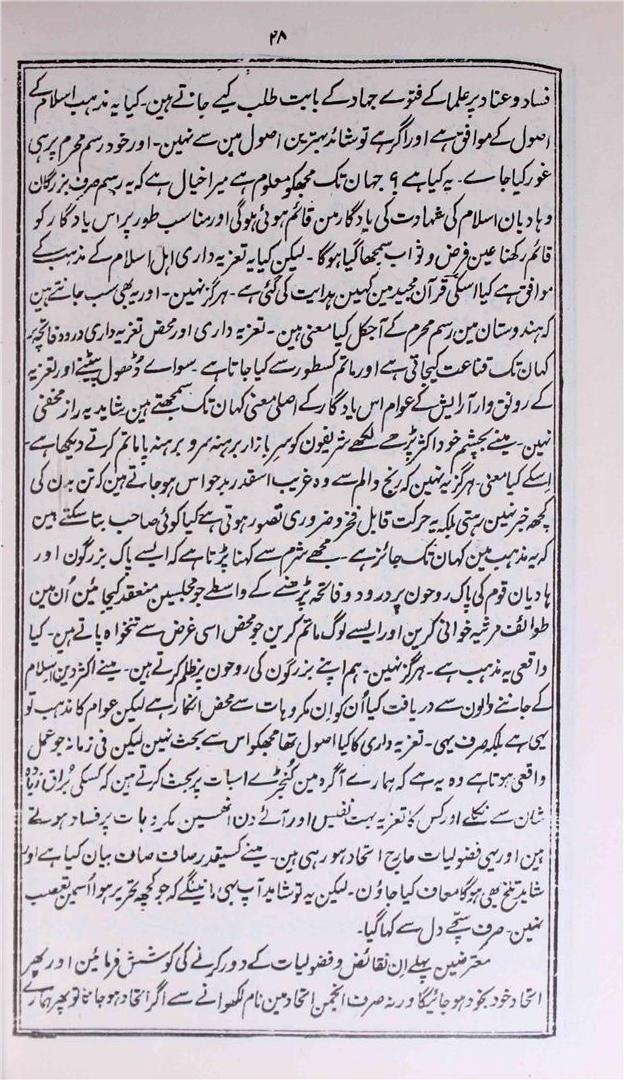 ۴۸
فساد و عناد پر علما کے فتوے جہاد کے بابت طلب کیے جاتے ہین۔ کیا یہ مذہب اسلام کے
اصول کے موافق ہے اور اگر ہے تو شائد بہترین اصول مین سے نہین۔ اور خود رسم محرم پر ہی
غور کیا جاے۔ یہ کیا ہے ؟ جہان تک مجھکو معلوم ہے میرا خیال ہے کہ یہ رسم صرف بزرگان
و ہادیان اسلام کی شہادت کی یادگار من قائم ہوئی ہوگی اور مناسب طور پر اس یادگار کو
قائم رکھنا عین فرض و ثواب سمجھا گیا ہوگا۔ لیکن کیا یہ تعزیہ داری اہل اسلام کے مذہب کے
موافق ہے کیا اسکی قرآن مجید مین کہین ہدایت کی گئی ہے۔ ہرگز نہین۔ اور یہ بھی سب جانتے ہین
کہ ہندوستان مین رسم محرم کے آجکل کیا معنی ہین۔ تعزیہ داری اور محض تعزیہ داری درود فاتحہ پر
کہان تک قناعت کیجاتی ہے اور ماتم کسطور سے کیا جاتا ہے سواے ڈھول پیٹنے اور تعزیہ
کے رونق وار آرایش کے عوام اس یادگار کے اصلی معنی کہان تک سمجھتے ہین شاید یہ راز مخفی
نہین۔ مینے بچشم خود اکثر پڑھے لکھے شریفون کو سر بازار برہنہ سر و برہنہ پا ماتم کرتے دیکھا ہے۔
اسکے کیا معنی۔ ہرگز یہ نہین کہ رنج و الم سے وہ غریب اسقدر بدحواس ہوجاتے ہین کہ تن بدن کی
کچھ خبر نہین رہتی بلکہ یہ حرکت قابل فخر و ضروری تصور ہوتی ہے کیا کوئی صاحب بتا سکتے ہین
کہ یہ مذہب مین کہان تک جائز ہے۔ مجھے شرم سے کہنا پڑتا ہے کہ ایسے پاک بزرگون اور
ہادیان قوم کی پاک روحون پر درود و فاتحہ پڑھنے کے واسطے جو مجلسین منعقد کیجائین اُن مین
طوائف مرثیہ خوانی کرین اور ایسے لوگ ماتم کرین جو محض اسی غرض سے تنخواہ پاتے ہین۔ کیا
واقعی یہ مذہب ہے۔ ہرگز نہین۔ ہم اپنے بزرگون کی روحون پر ظلم کرتے ہین۔ مینے اکثر دین اسلام
کے جاننے والون سے دریافت کیا اُن کو ان مکروہات سے محض انکار ہے لیکن عوام کا مذہب تو
یہی ہے بلکہ صرف یہی۔ تعزیہ داری کا کیا اصول تھا مجھکو اس سے بحث نہین لیکن فی زمانہ جو عمل
واقعی ہوتا ہے وہ یہ ہے کہ ہمارے آگرہ مین کنجڑے اسبات پر بحث کرتے ہین کہ کسکی بُراق زیادہ
شان سے نکلے اور کس کا تعزیہ بہت نفیس اور آئے دن انھین مکروہات پر فساد ہوتے
ہین اور یہی فضولیات حارج اتحاد ہو رہی ہین۔ مینے کسیقدر صاف صاف بیان کیا ہے اور
شاید تلخ بھی ہوگا معاف کیا جاؤن۔ لیکن یہ تو شاید آپ بھی مانینگے کہ جو کچھ تحریر ہوا اُسمین تعصب
نہین۔ صرف سچّے دل سے کہا گیا۔
معترضین پہلے ان نقائض و فضولیات کے دور کرنے کی کوشش فرمائین اور پھر
اتحاد خود بخود ہو جائیگا ورنہ صرف انجمن اتحاد مین نام لکھوانے سے اگر اتحاد ہو جاتا تو پھر ہمارے